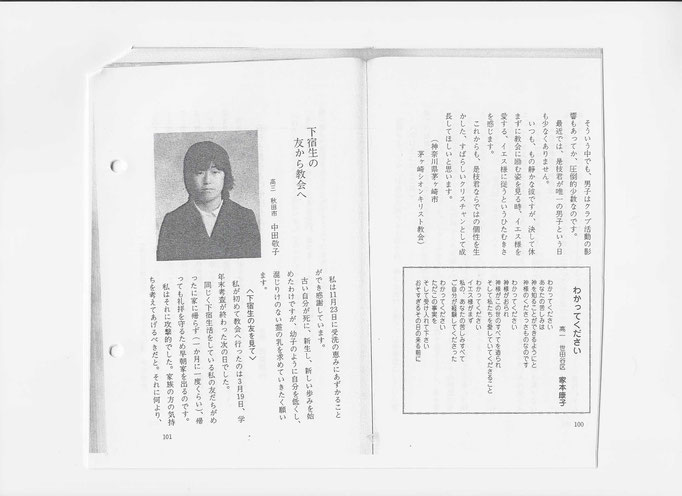 そういう中でも、男子はクラブ活動の影
響もあってか、圧倒的少数なのです。
最近では、是枝君が唯一の男子という日
も少なくありません。
いつも、もの静かな彼ですが、決して休
まずに教会に励む姿を見る時、イエス様を
愛する、イエス様に従うというひたむきさ
を感じます。
これからも、是枝君ならではの個性を生
かした、すばらしいクリスチャンとして成
長してほしいと思います。
（神奈川県茅ヶ崎市
茅ヶ崎シオンキリスト教会）
わかってください
高一 世田谷区 家本康子
わかってください
あなたの苦しみは
神を知ることができるようにと
神様のくださったものなのです
わかってください
神様がおられ
神様がこの世のすべてを造られ
そして私たちを愛していてくださること
わかってください
イエス様がまず
私の、あなたの苦しみすべて
ご自分が経験してくださった
ただこの事実を
わかってください
そして受け入れて下さい
おそすぎるその日の来る前に
100
下宿生の
友から教会へ
高三 秋田市 中田敬子
私は11月23日に受洗の恵みにあずかること
ができ感謝しています。
古い自分が死に、新生し、新しい歩みを始
めたわけですが、幼子のように自分を低くし、
混じりけのない霊の乳を求めていきたく願い
ます。
〈下宿生の友を見て〉
私が初めて教会へ行ったのは3月19日、学
年末考査が終わった次の日でした。
同じく下宿生活をしている私の友だちがめ
ったに家に帰らず（一か月に一度くらい）、帰
っても礼拝を守るため早朝家を出るのです。
私はそれに攻撃的でした。家族の方の気持
ちを考えてあげるべきだと。それに何より、
101